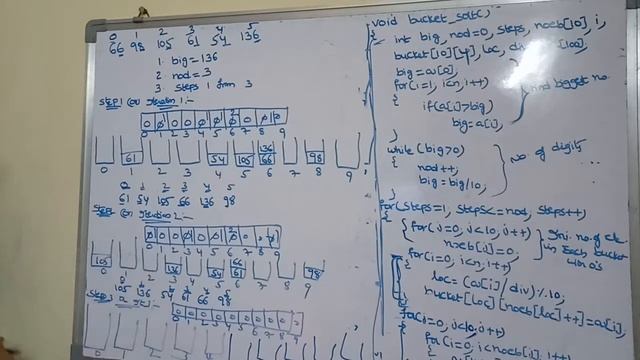 0 1 2 3 4 5
66 98 105 61 54 136
1. big=136
2. nod=3
3. steps 1 from 3
Step1 (or) Iteration 1:-
0 1 2 3 4 5 6 7 8 9
61 54 105 136 66 98
0 1 2 3 4 5 6 7 8 9
0 1 2 3 4 5
61 54 105 66 136 98
Iteration 2:-
0 1 2 3 4 5 6 7 8 9
105 136 54 66 61 98
0 1 2 3 4 5 6 7 8 9
105 136 54 61 66 98
Step 3
0 0 0 0 0 0 0 0 0
0 1 2 3 4 5 6 7 8 9
void bucket_sort()
{
int big, nod=0, steps, noeb[10], i,
bucket[10][4], loc,
big=a[0];
for(i=1, i<n, i++)
{
if(a[i]>big)
big=a[i],
}
find biggest no.
while (big>0)
{
nod++;
big=big/10,
}
No of digits
for(steps=1, steps<=nod, steps++)
{
for(i=0, i<10, i++)
noeb[i]=0,
in each bucket
for(i=0, i<n, i++)
{
loc=(a[i]/div)%10,
bucket[loc][noeb[loc]++]=a[i],
}
for(i=0, i<10, i++)